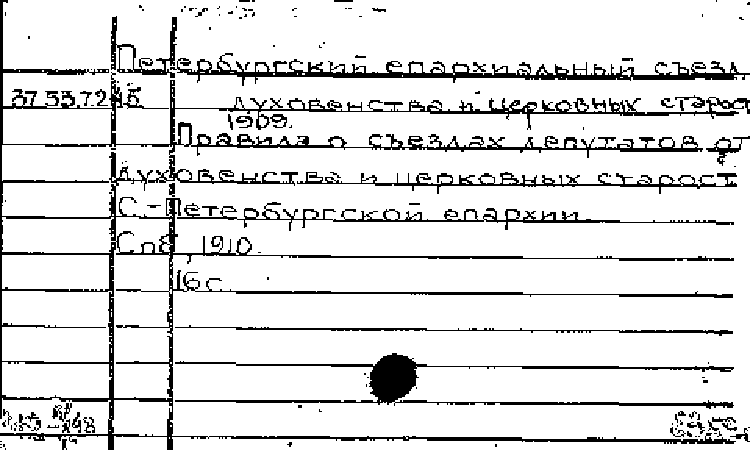 Петербургский епархиальный съезд
37.53.7.245 духовенства и церковных старост
1909.
Правила о съездах депутатов от
духовенства и церковных старост
С.-Петербургской епархии
Спб, 1910
16 с